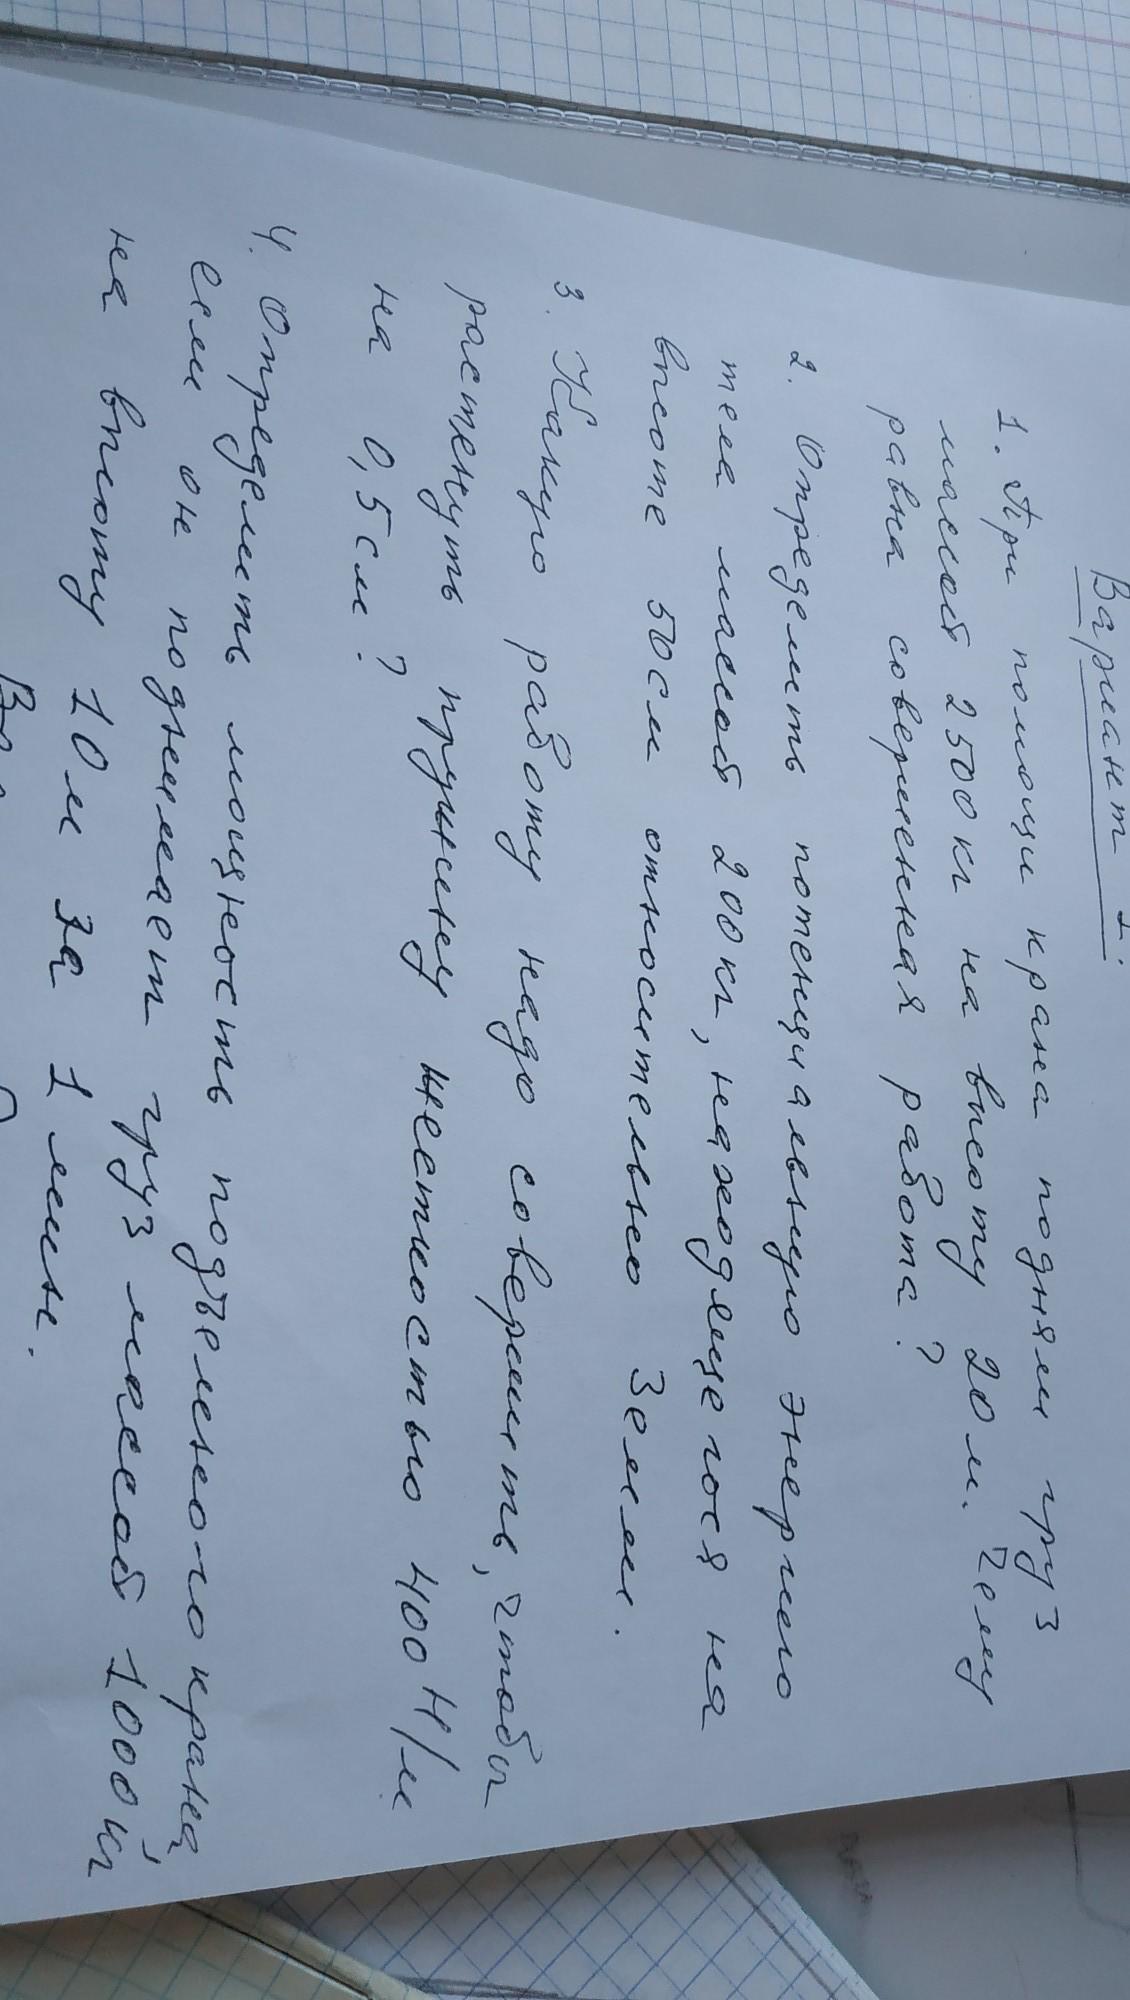 Вариант 1.
1. При помощи крана подняли груз
массой 2500кг на высоту 20м. Чему
равна совершенная работа?
2. Определить потенциальную энергию
тела массой 200кг, находящегося на
высоте 50см относительно Земли.
3. Какую работу надо совершить, чтобы
растянуть пружину жесткостью 400 Н/м
на 0,5см?
4. Определить мощность подъемного крана,
если он поднимает груз массой 1000кг
на высоту 10м за 1 мин.